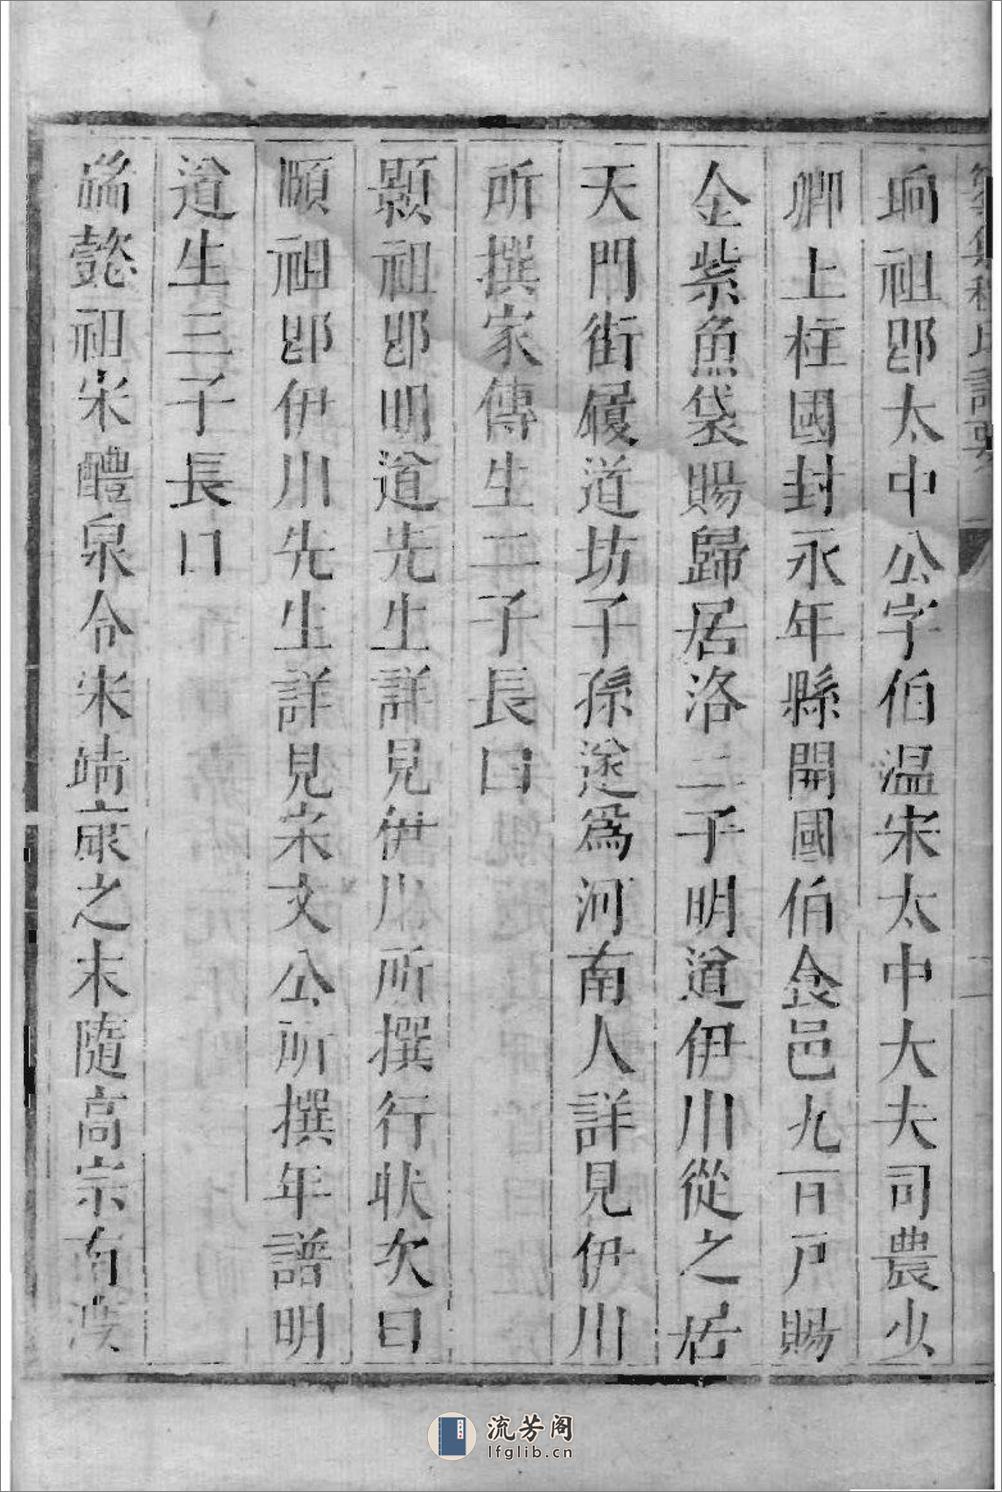 珦祖郎太中公字伯温宋太中大夫司農少
卿上柱國封永年縣開國伯食邑九百戸賜
金紫魚袋賜歸居洛二子明道伊川從之居
天門街履道坊子孫遂爲河南人詳見伊川
所撰家傳生二子長曰
顥祖郎明道先生詳見伊川所撰行狀次曰
頤祖郎伊川先生詳見朱文公所撰年譜明
道生三子長曰
端懿祖宋醴泉令宋靖康之末隨高宗南渡
流芳阁
lfglib.cn